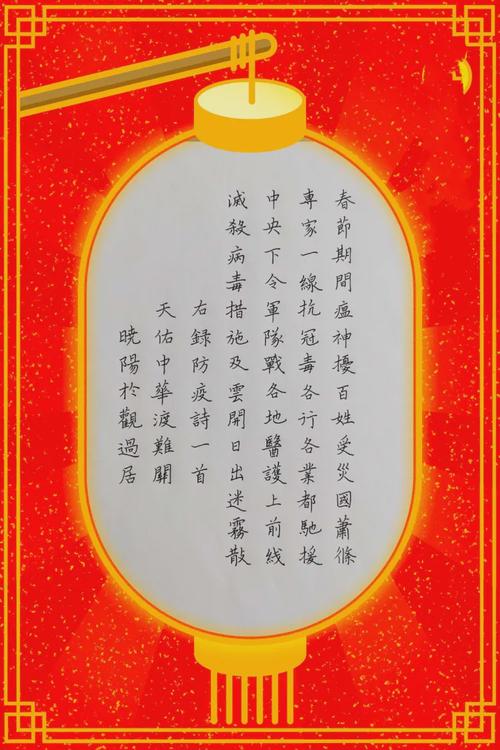 春節期間瘟神擾百姓受災國蕭條
專家一線抗冠毒各行各業都馳援
中央下令軍隊戰各地醫護上前线
滅殺病毒措施及雲開日出迷霧散
右錄防疫詩一首
天佑中華渡難關
曉陽於觀過居